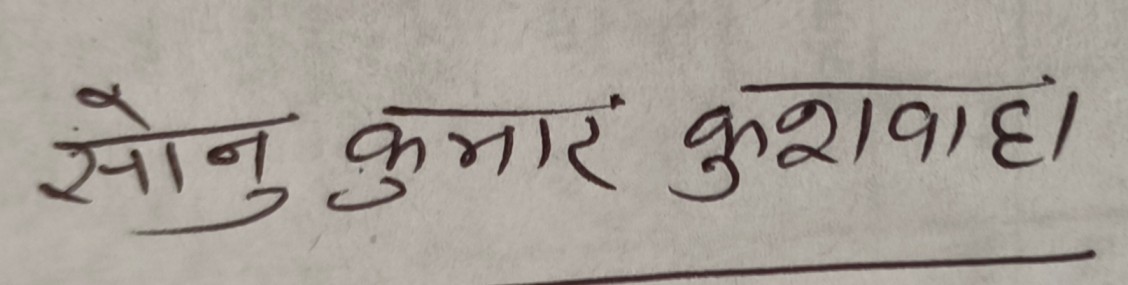 सोनु कुमार कुशवाहा